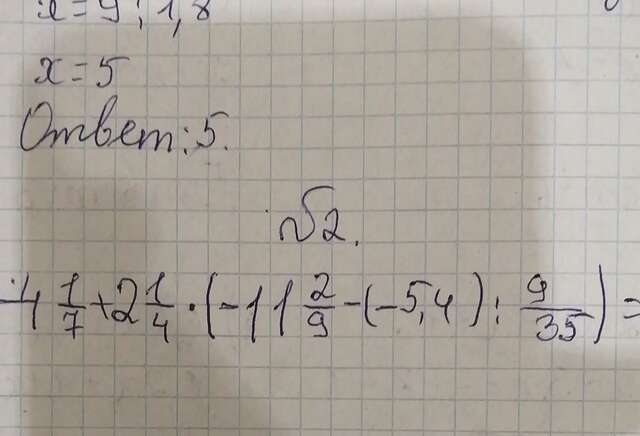 x=9:1,8
x=5
Ответ: 5.
№2.
-4 1/7 + 2 1/4 · (-11 2/9 - (-5,4) : 9/35) =